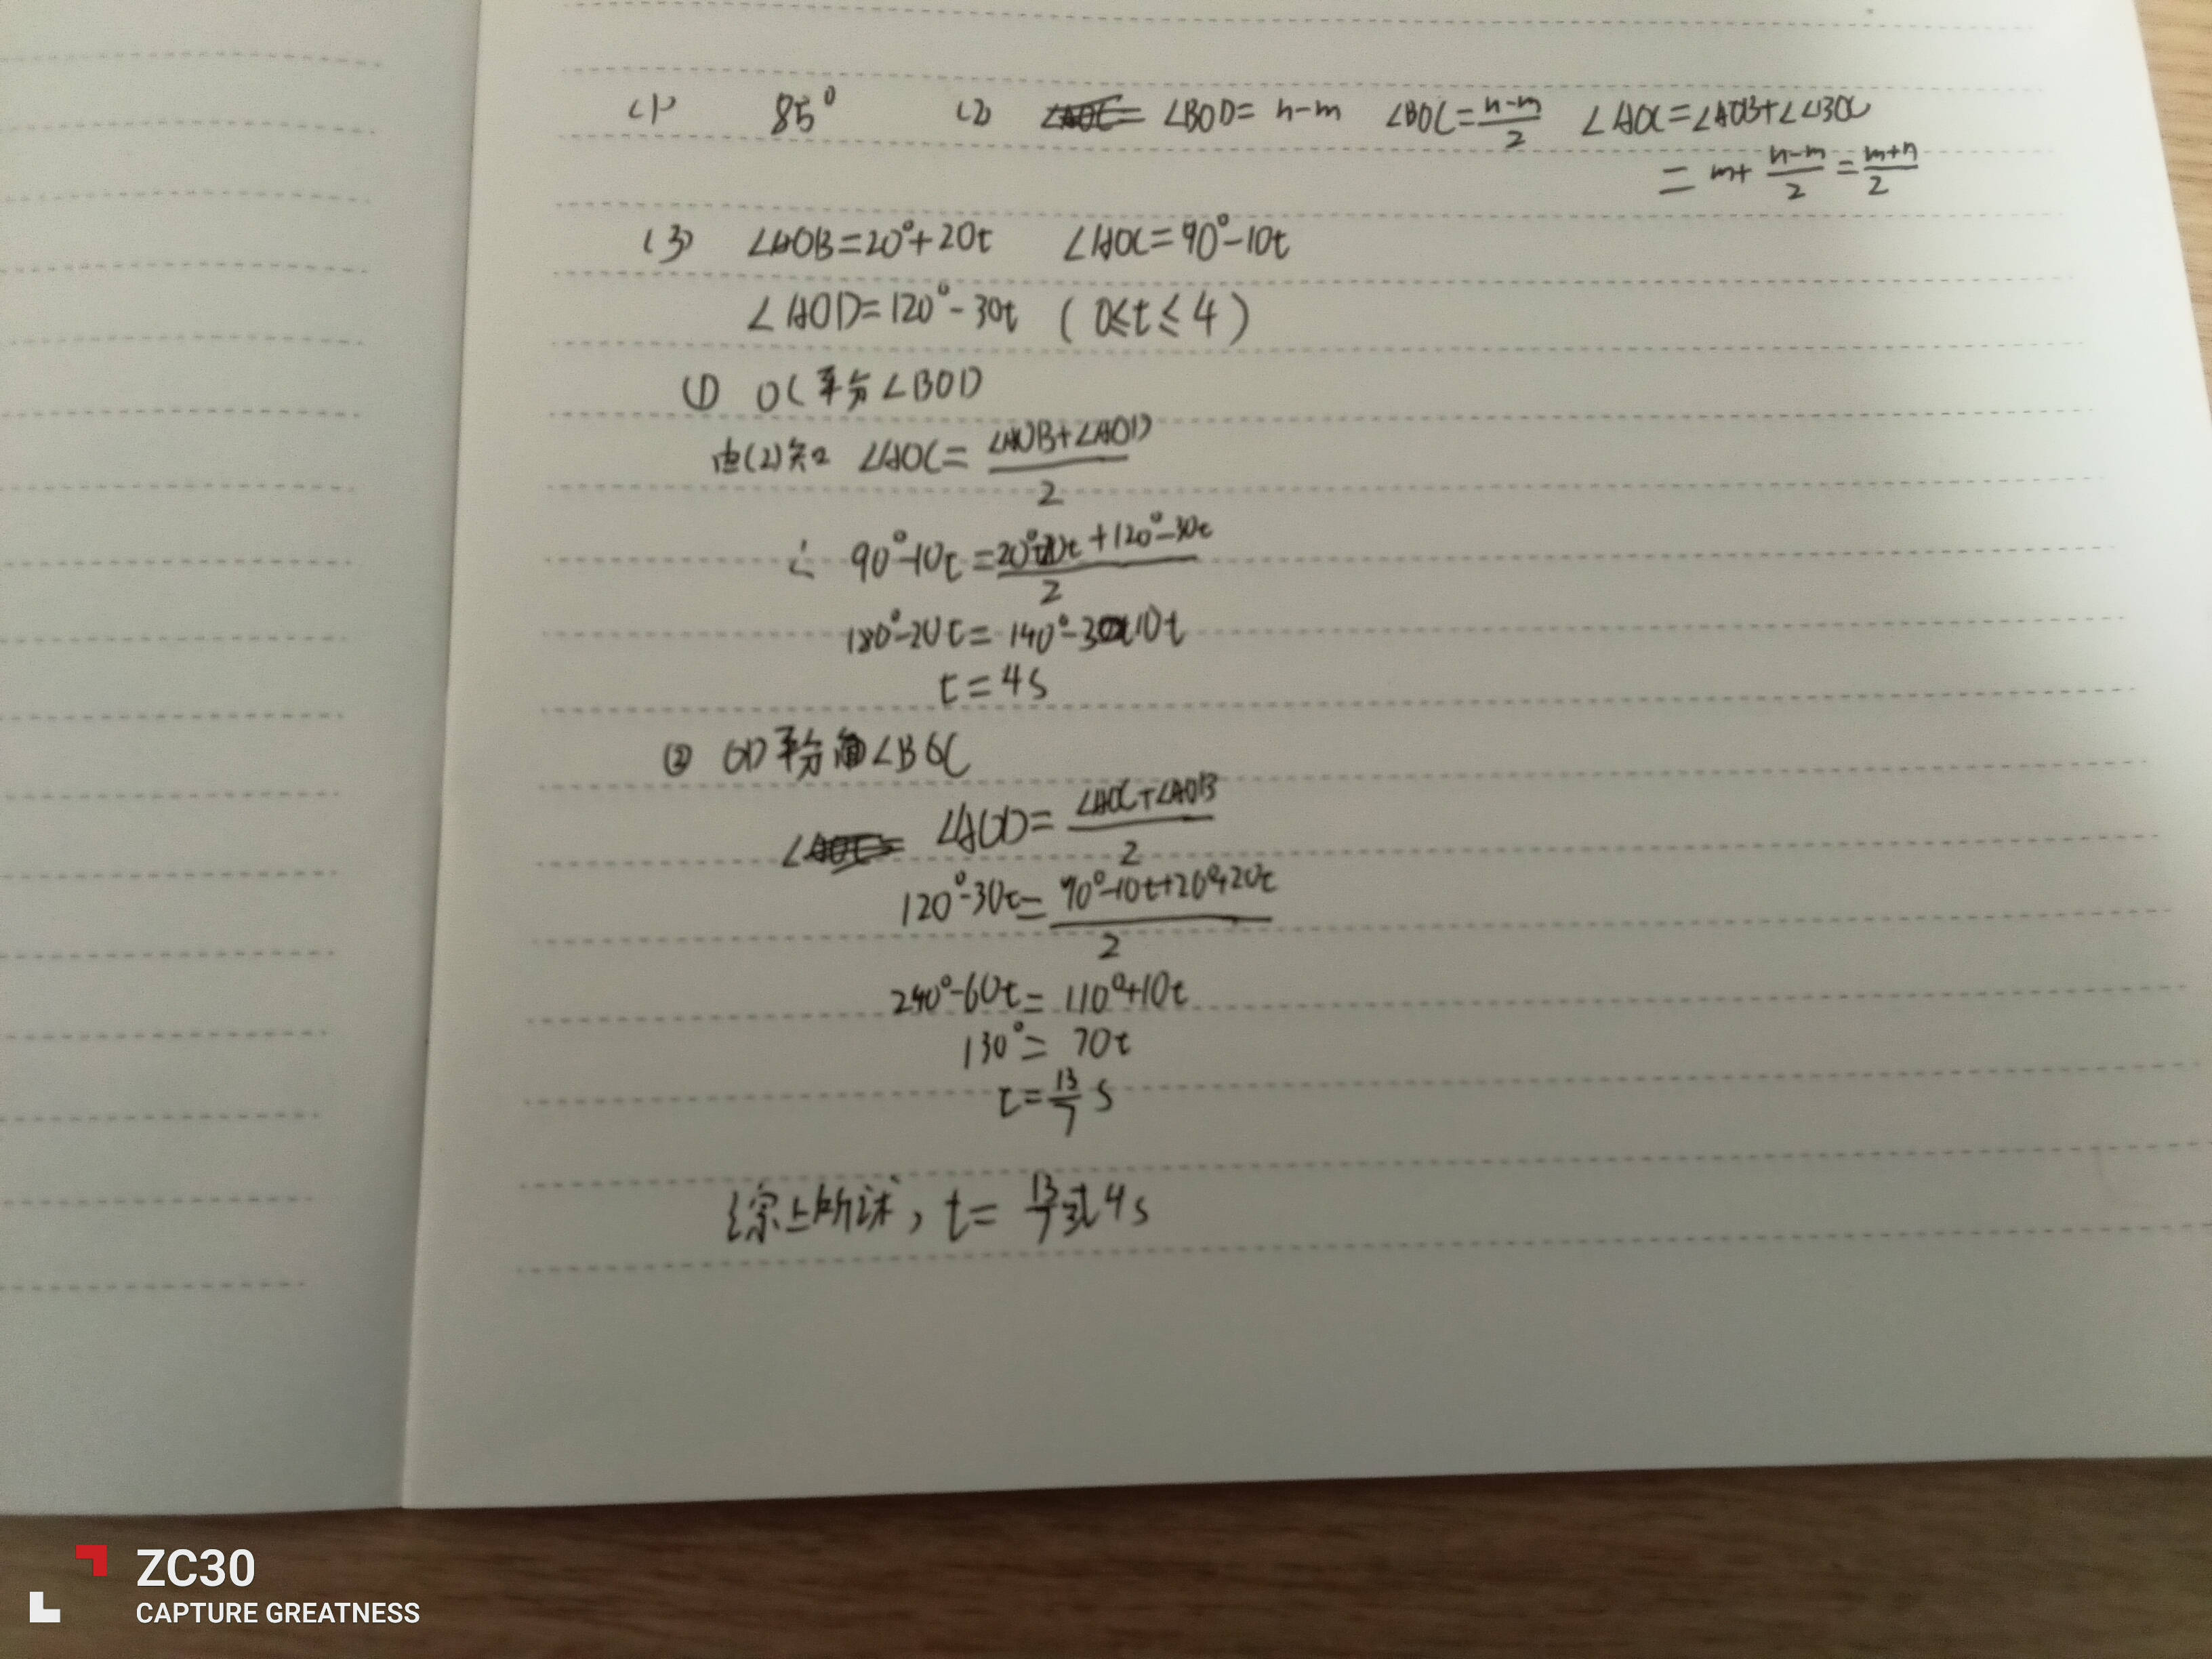 (1) 85° (2) ∠BOD= n-m ∠BOC=\frac{n-m}{2} ∠AOC=∠AOB+∠∠BOC
= m+\frac{n-m}{2}=\frac{m+n}{2}
(3) ∠AOB=20°+20t ∠AOC=90°-10t
∠AOD=120°-30t (0≤t≤4)
① OC平分∠BOD
由(2)知 ∠AOC=\frac{∠AOB+∠AOD}{2}
∴ 90°-10t=\frac{20°+20t+120°-30t}{2}
180°-20t=140°-10t
t=4s
② OD平分∠BOC
∠AOD=\frac{∠AOC+∠AOB}{2}
120°-30t=\frac{90°-10t+20°+20t}{2}
240°-60t=110°+10t
130°=70t
t=\frac{13}{7}s
综上所述,t=\frac{13}{7}或4s
ZC30
CAPTURE GREATNESS